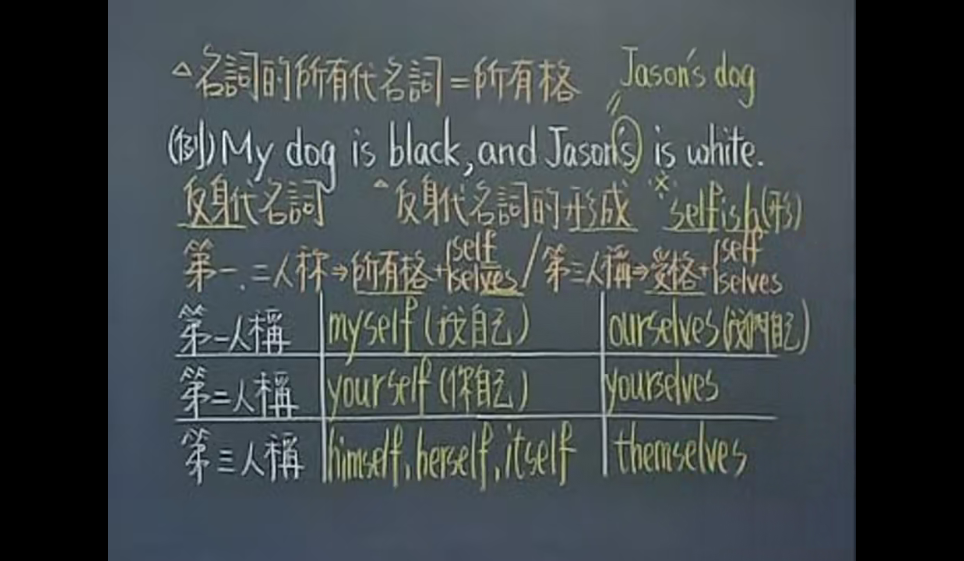 △名詞的所有代名詞=所有格 Jason's dog
(例)My dog is black, and Jason's is white.
反身代名詞 △反身代名詞的形成 ※selfish(形)
第一、二人称⇒所有格+{self selves / 第三人稱⇒受格+{self selves
第一人稱 myself (我自己) ourselves (我們自己)
第二人稱 yourself (你自己) yourselves
第三人稱 himself, herself, itself themselves